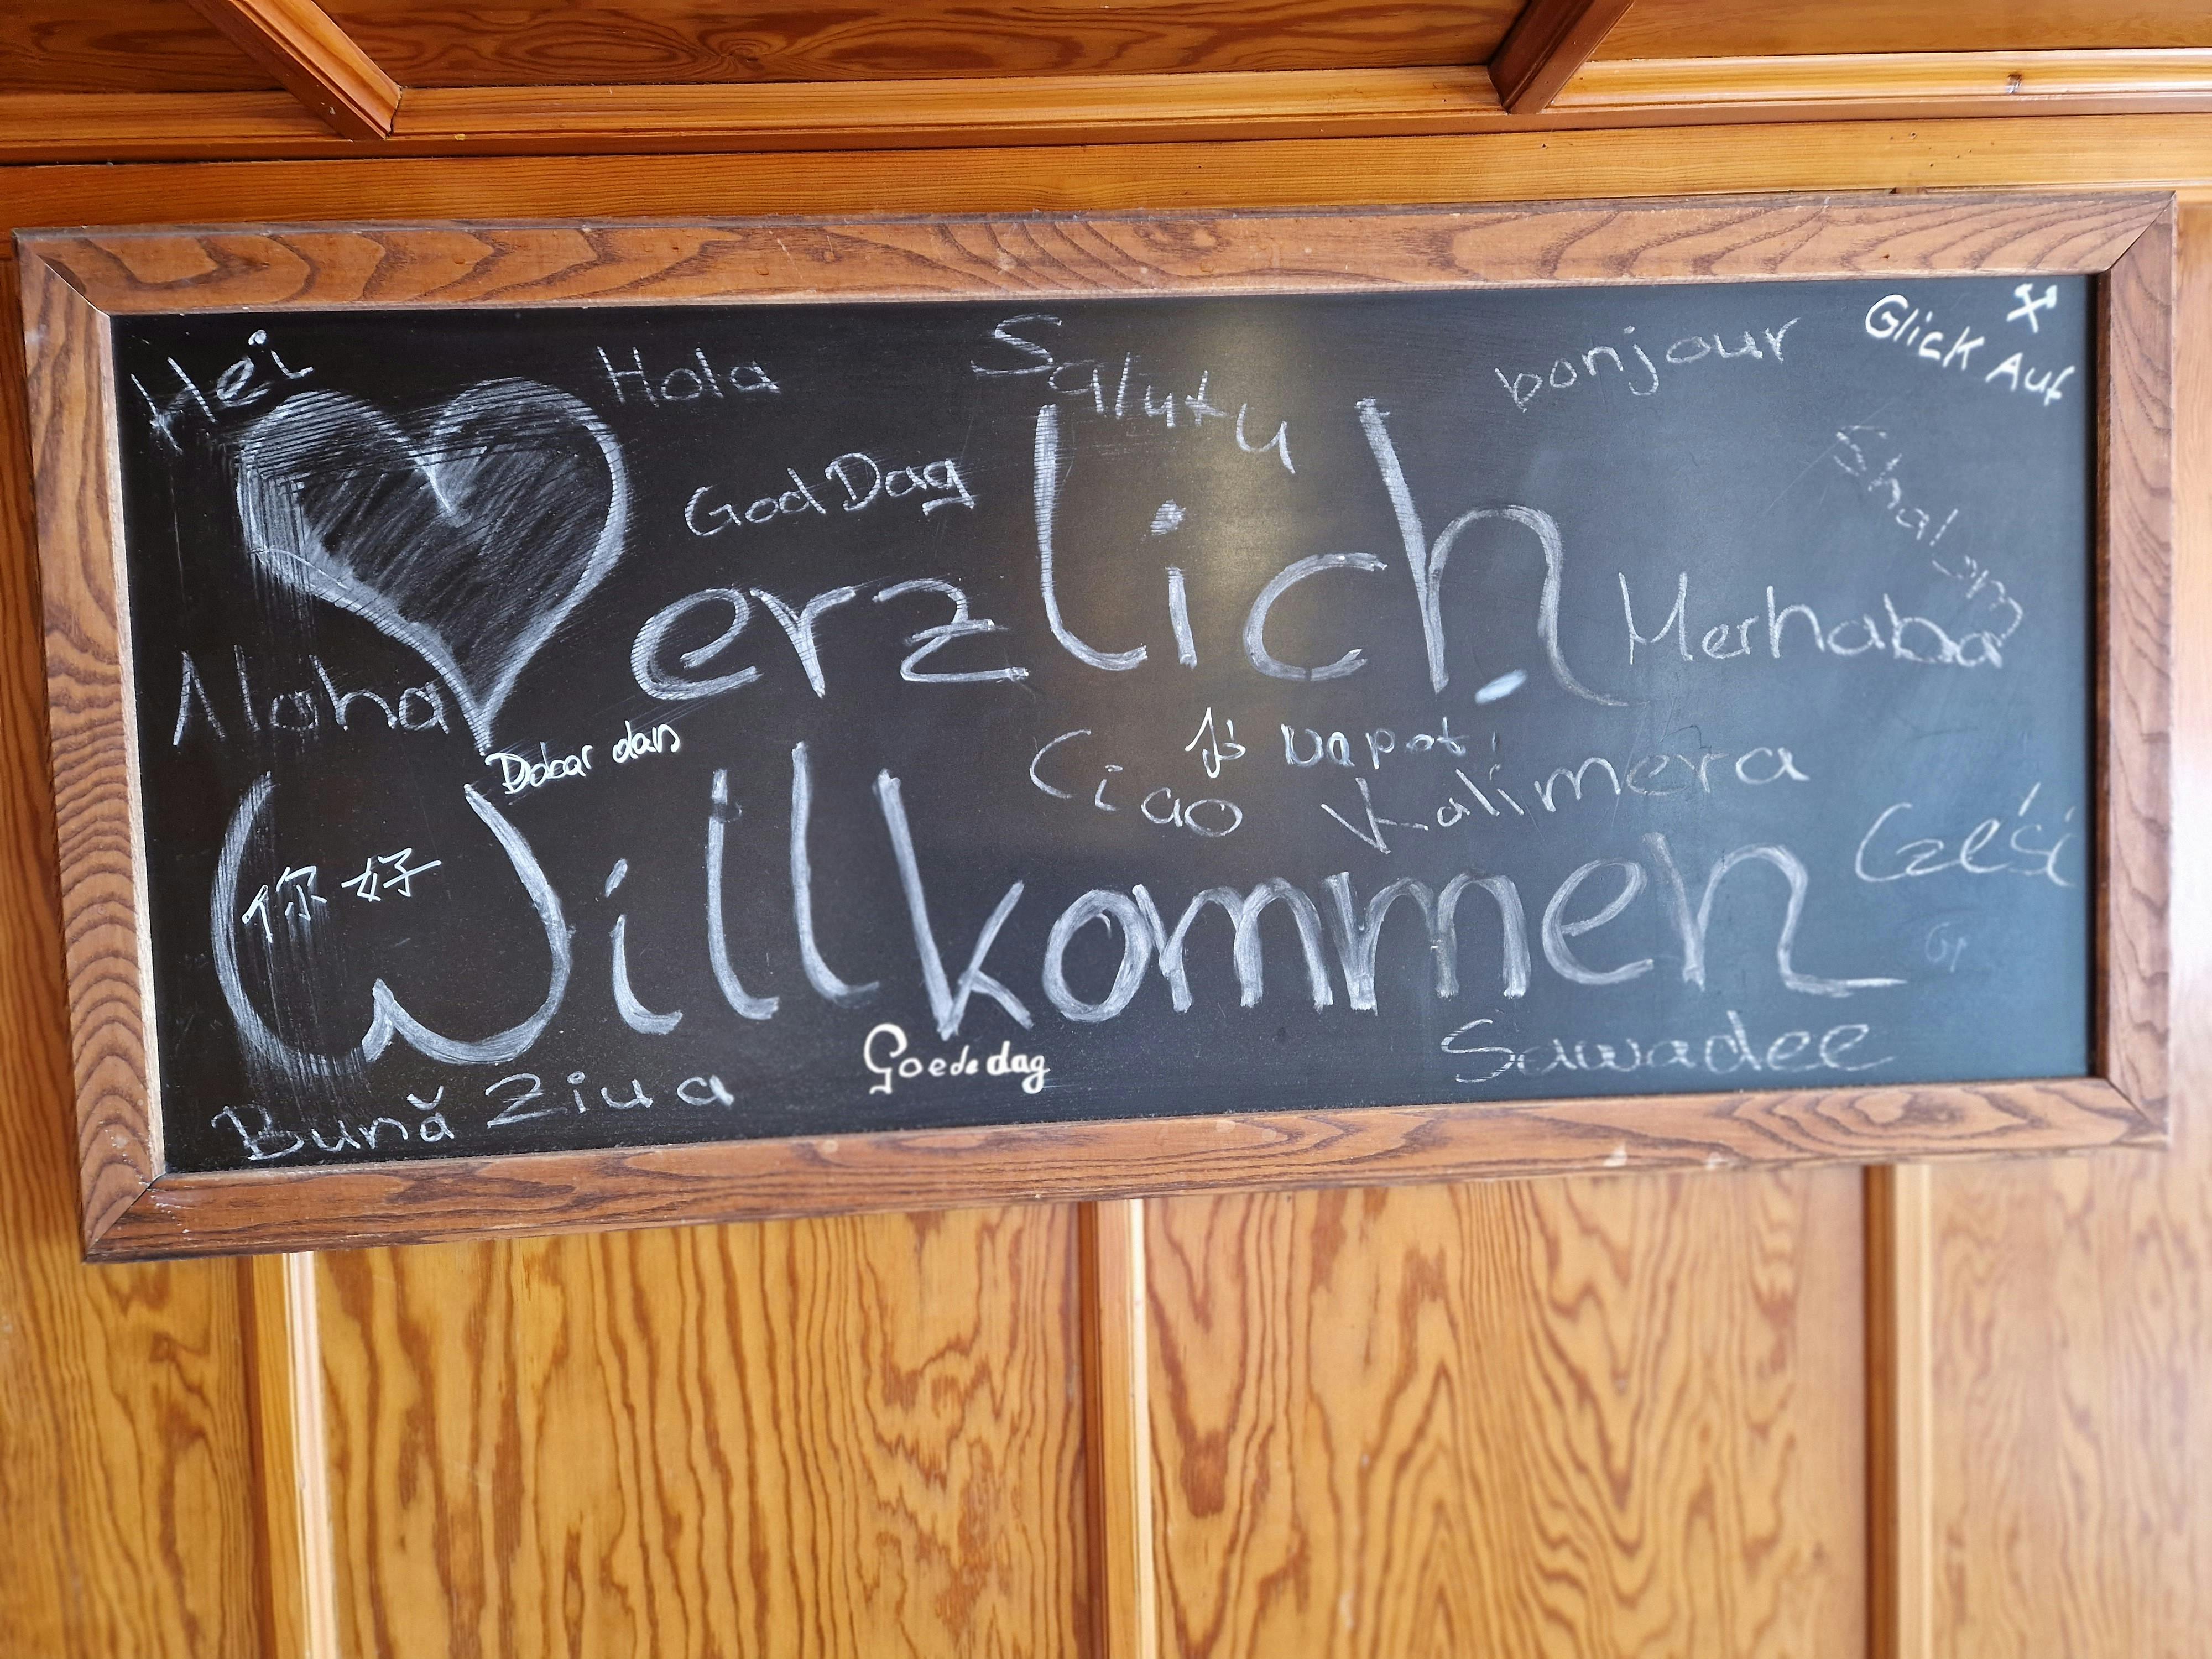 Hei
Hola
Salutu
bonjour
Glick Auf
God Dag
Shalom
erzlich
Merhaba
Aloha
Dobar dan
Jó napot
Ciao
Kalimera
Willkommen
你好
Cześć
Goede dag
Sawadee
Bună Ziua